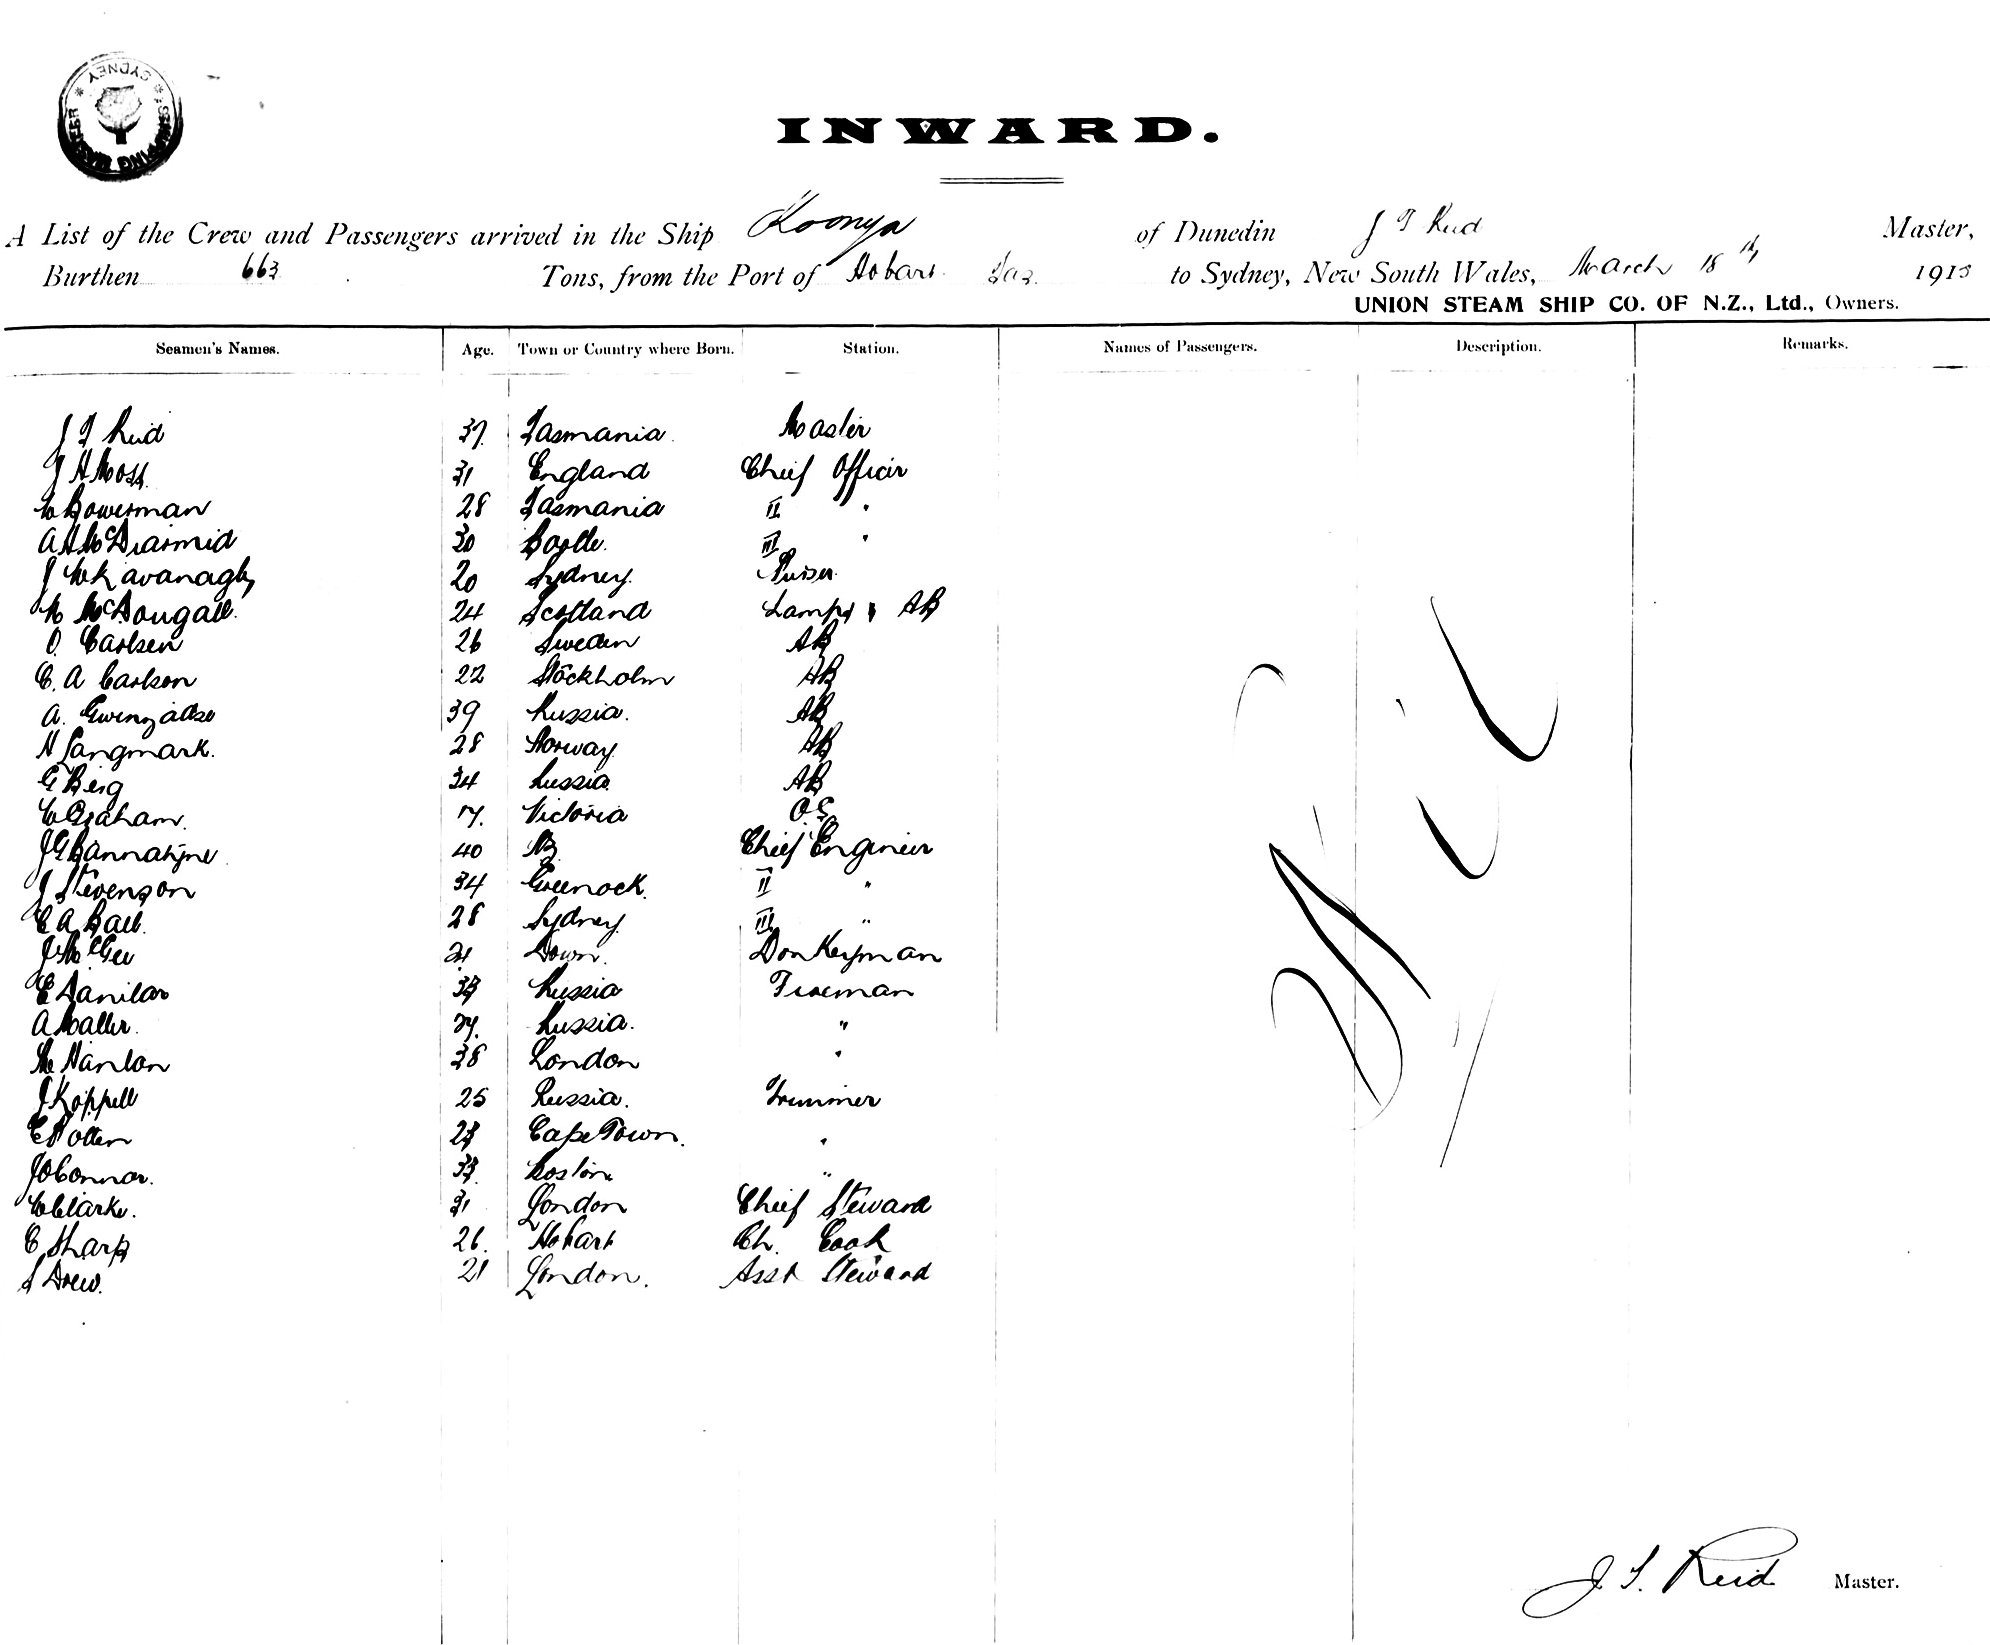 SHIPPING MASTER * SYDNEY *
INWARD.
A List of the Crew and Passengers arrived in the Ship Koonya of Dunedin J T Reid Master,
Burthen 663 Tons, from the Port of Hobart Tas. to Sydney, New South Wales, March 18th 1913
UNION STEAM SHIP CO. OF N.Z., Ltd., Owners.
Seamen's Names. Age. Town or Country where Born. Station. Names of Passengers. Description. Remarks.
J T Reid 37. Tasmania. Master
J H Moss. 31 England Chief Officer
Bowerman 28 Tasmania II "
A H McDiarmid 30 III "
J W Kavanagh 20 Sydney. Purser
McDougall. 24 Scotland Lamps & AB
O. Carlsen 26 Sweden AB
C. A Carlson 22 Stockholm AB
A. 39 Russia. AB
H Langmark. 28 Norway AB
G Berg 34 Russia AB
Graham. 17. Victoria O.S
J G Bannatyne 40 NZ Chief Engineer
J Stevenson 34 Greenock. II "
C A Ball. 28 Sydney III "
J McGee Down. Donkeyman
E Danilar Russia Fireman
A Maller. Russia. "
Hanlon 38 London "
J Koppell 25 Russia. Trimmer
Cape Town. "
J OConnor. Boston "
C Clarke. 31 London Chief Steward
C Sharp 26. Hobart Ch. Cook
S Drew. 21 London. Asst Steward
Nil
J. T. Reid Master.